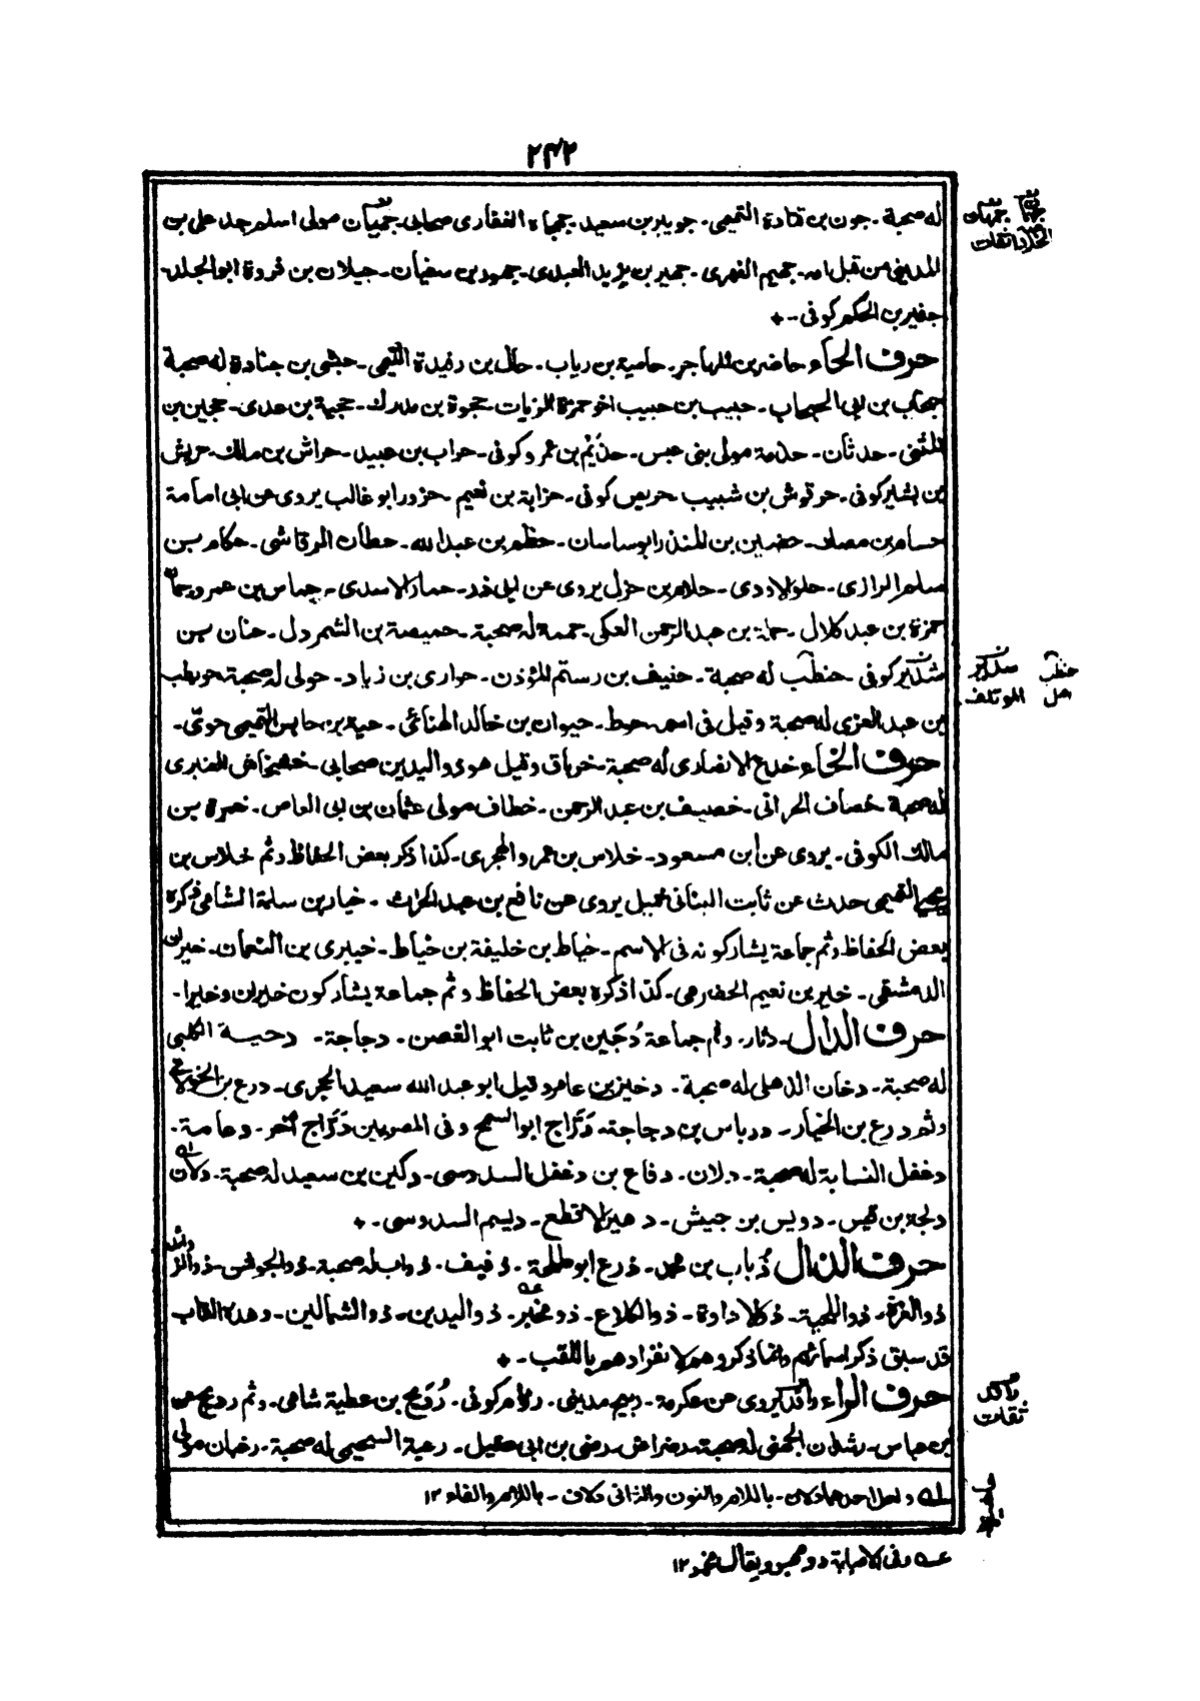 ٢٤٢
له صحبة ـ جون بن قتادة التميمي ـ جويبر بن سعيد ـ جهجاه الغفاري صحابي ـ جمهان مولى اسلم جد على بن
المديني من قبل امه ـ جهيم الفهري ـ جمير بن يزيد العبدي ـ جمهور بن سفيان ـ جيلان بن فروة ابو الجلد ـ
جفير بن الحكم كوفي ـ
حرف الحاء حاضر بن المهاجر ـ حامية بن رياب ـ حال بن رفيدة التيمي ـ حبشي بن جنادة له صحبة
حبحاب بن ابي الحبحاب ـ حبيب بن حبيب اخو حمزة الزيات ـ حجوة بن مدرك ـ حجية بن عدى ـ حجين بن
المثنى ـ حدثان ـ حذامة مولى بني عبس ـ حذيم بن عمرو كوفي ـ حراب بن عبيد ـ حراش بن مالك ـ حريش
بن بشير كوفي ـ حرقوش بن شبيب حريص كوفي ـ حزابة بن نعيم ـ حزور ابو غالب يروى عن ابي امامة
حسام بن مصك ـ حضين بن المنذر ابو ساسان ـ حظم بن عبد الله ـ حطان الرقاشي ـ حكام بن
سلم الرازي ـ حلو الاودى ـ حلام بن جزل يروى عن ابي ذر ـ حماز الاسدى ـ حماس بن عمرو
حمزة بن عبد كلال ـ حملة بن عبد الرحمن العكي ـ حممة له صحبة ـ حميضة بن الشمردل ـ حنان بن
سدير كوفي ـ حنطب له صحبة ـ حنيف بن رستم المؤذن ـ حوارى بن زياد ـ حولى له صحبة حويطب
بن عبد العزى له صحبة وقيل في اسمه حوط ـ حيوان بن خالد الهنائي ـ حية بن حابس التميمي حوى ـ
حرف الخاء خداع الانصارى له صحبة ـ خرباق وقيل هو ذو اليدين صحابي ـ خشخاش العنبرى
له صحبة خصاف الحراني ـ خصيف بن عبد الرحمن ـ خطاف مولى عثمان بن ابي العاص ـ خمرة بن
مالك الكوفي ـ يروى عن ابن مسعود ـ خلاس بن عمرو الهجرى ـ كذا ذكر بعض الحفاظ وثم خلاس بن
يحيى التميمي حدث عن ثابت البناني يروى عن نافع بن عبد الحارث ـ خيار بن سلمة الشامي ذكره
بعض الحفاظ وثم جماعة يشاركونه في الاسم ـ خياط بن خليفة بن خياط ـ خيبرى بن النعمان ـ خيران
الدمشقي ـ خير بن نعيم الحضرمي ـ كذا ذكره بعض الحفاظ وثم جماعة يشاركون خيران وخيرا ـ
حرف الدال ـ دثار وثم جماعة دُجَين بن ثابت ابو الغصن ـ دجاجة ـ دحية الكلبي
له صحبة ـ دخان الذهلي له صحبة ـ دخين بن عامر وقيل ابو عبد الله سعيد الحجرى ـ درع بن
وثم درع بن الخيار ـ درباس بن دجاجة دَرَّاج ابو السمح وفي المصريين دَرَّاج آخر ـ دعامة ـ
دغفل النسابة له صحبة ـ دلان ـ دفاع بن دغفل السدوسي ـ دكين بن سعيد له صحبة ـ دلان
دلجة بن قيس ـ دويس بن جيش ـ دهير الاقطع ـ ديسم السدوسي ـ
حرف الذال ذُباب بن محمد ـ ذرع ابو طلحة ـ ذفيف ـ ذواب له صحبة ـ ذو الجوشن ـ ذو الزوائد
ذو الغرة ـ ذو اللحية ـ ذكلاداوة ـ ذو الكلاع ـ ذو مخبر ـ ذو اليدين ـ ذو الشمالين ـ وهذه القاب
قد سبق ذكر اسمائهم وانما ذكروهم لانفرادهم باللقب ـ
حرف الراء راكد يروى عن عكرمة ـ ربيم مديني ـ رزام كوفي ـ رُدَيح بن عطية شامي ـ وثم رديح عن
بن عباس ـ رشدان الجهني له صحبة ـ رضراض رضى بن ابي عقيل ـ رعية السحيمي له صحبة ـ رغبان مولى
له ولعل احدهما دلان ـ باللام والنون والثاني دلاف ـ باللام والفاء ١٢
عه وفي الاصابة ذو مخبر ويقال مخمر ١٢
جمهان
ثقات
حنطب سدير
المؤتلف
راكد
ثقات